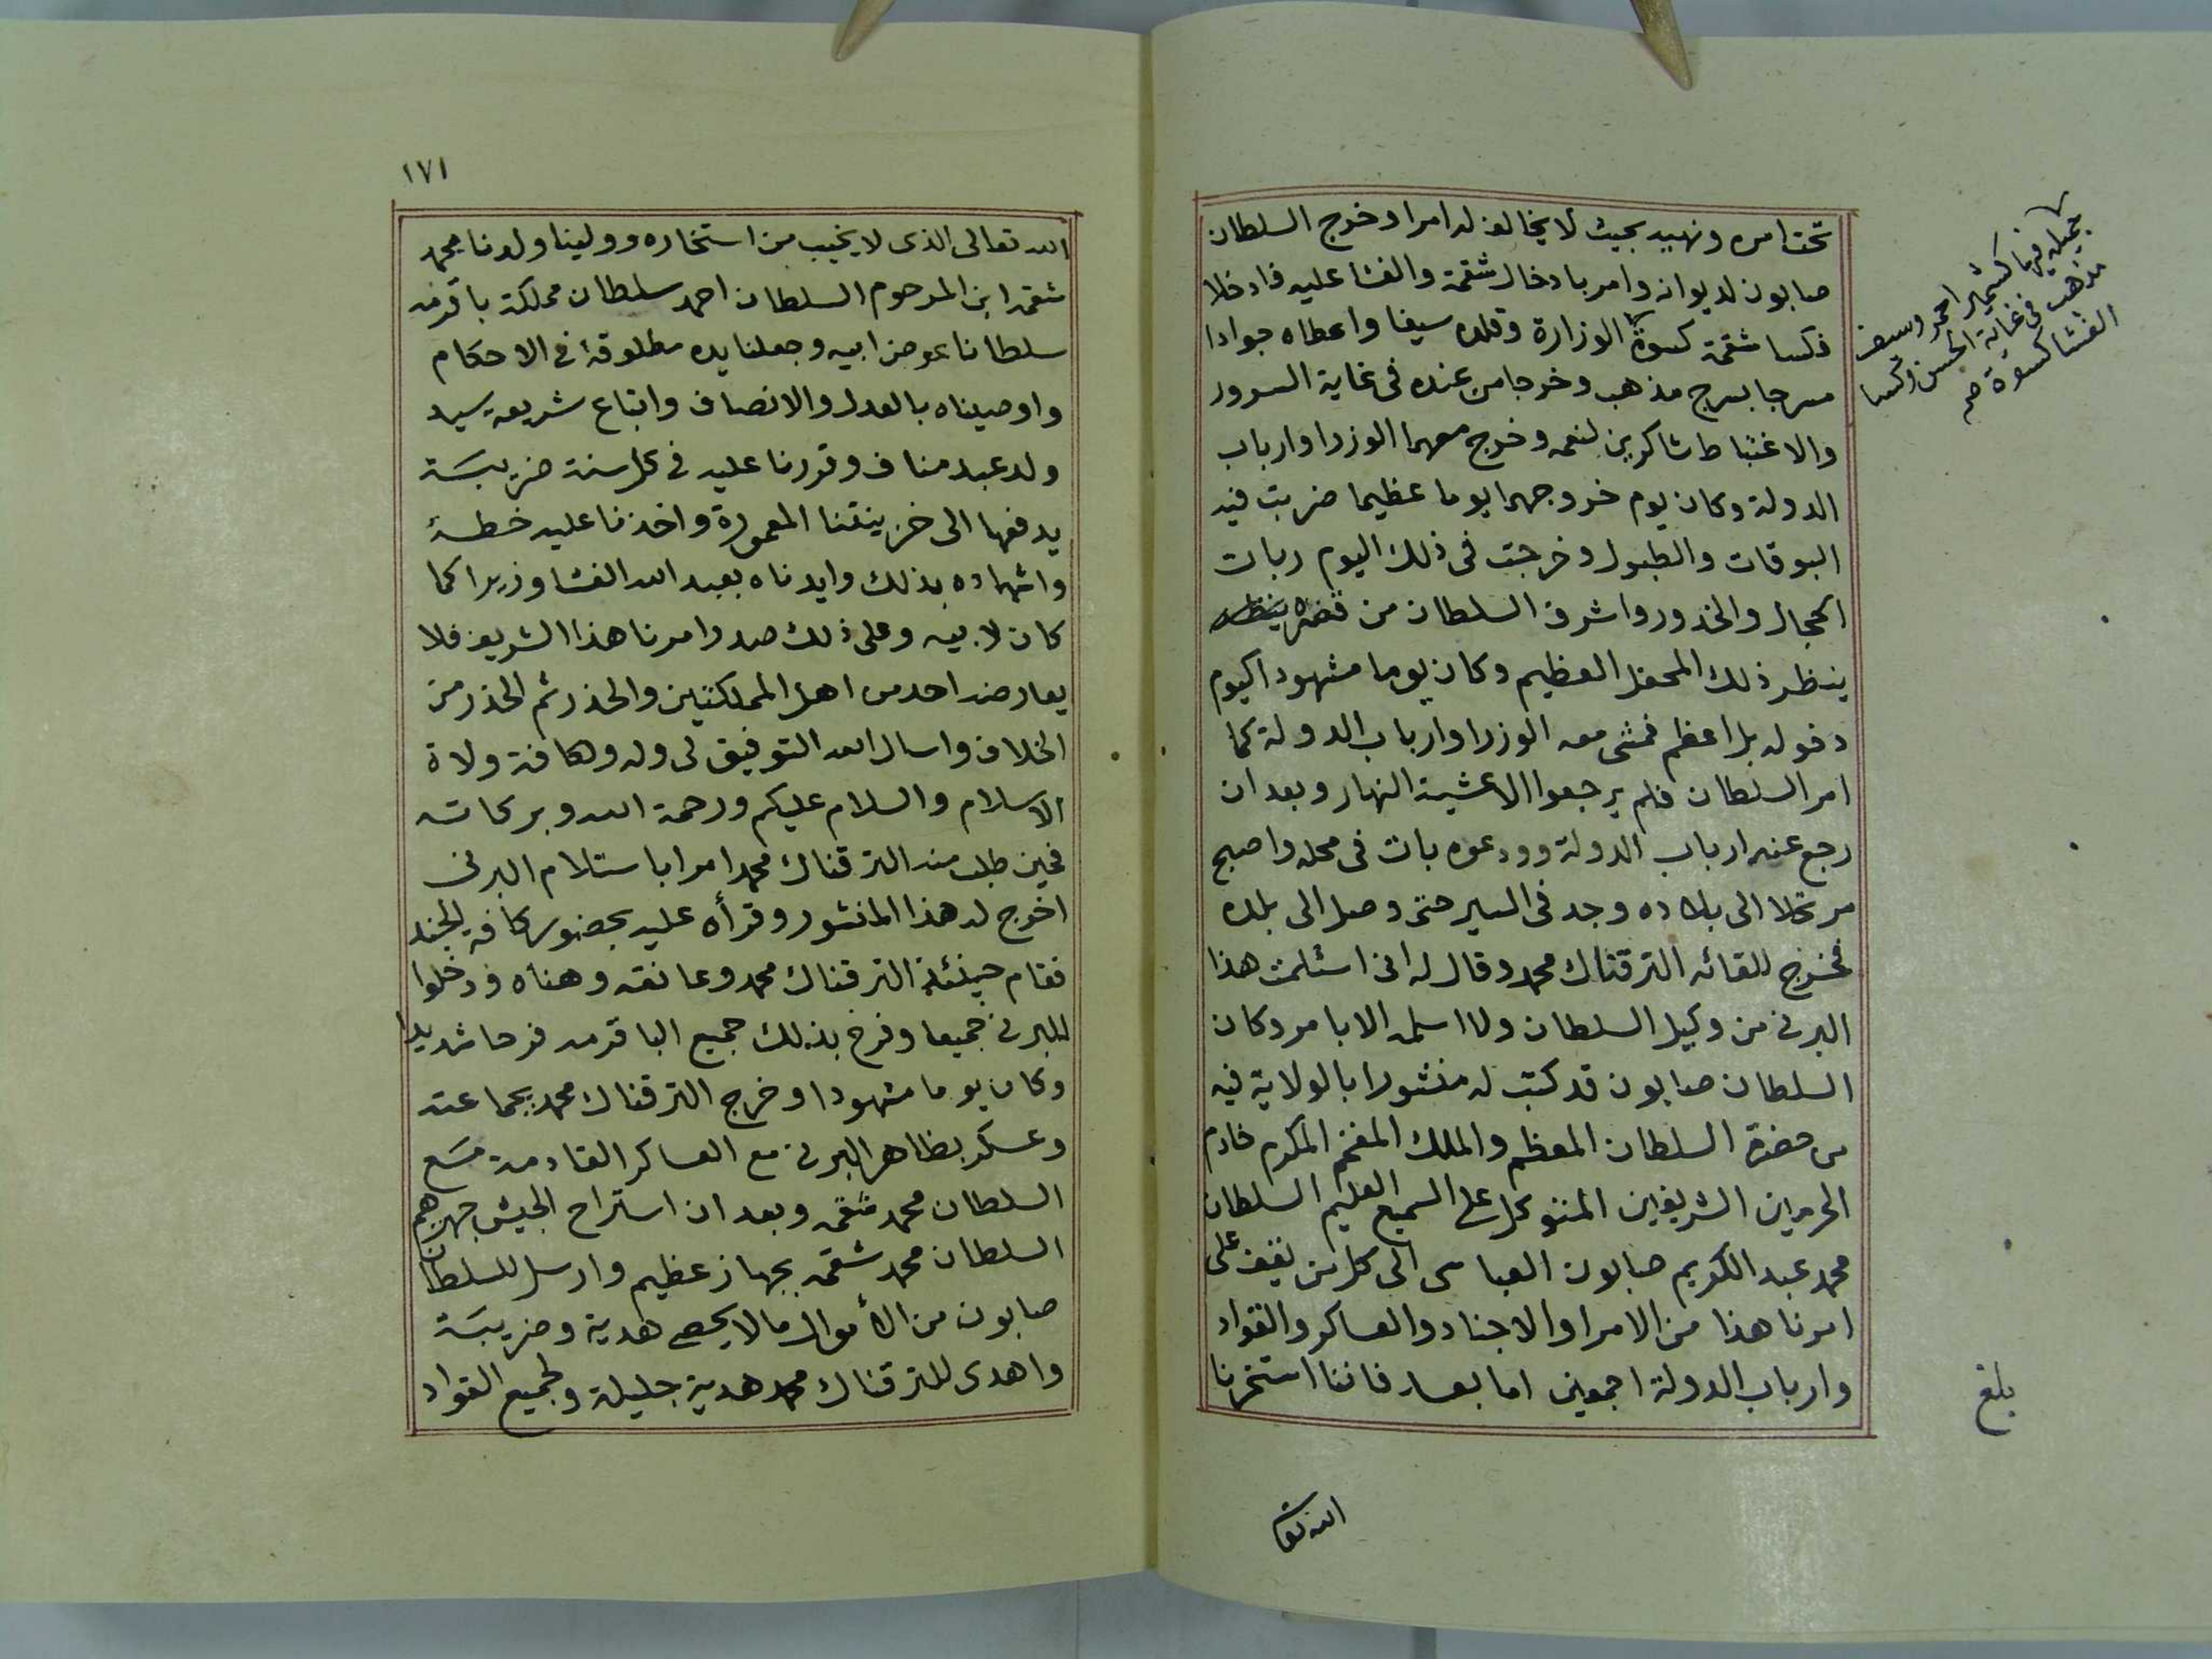 تحت امره ونهيه بحيث لا يخالف له امرا وخرج السلطان
صابون لديوانه وامر بادخال شقمة والفشا عليه فادخلا
فكسا شقمة كسوة الوزارة وقلده سيفا واعطاه جوادا
مسرجا بسرج مذهب وخرجا من عنده في غاية السرور
والاغتباط شاكرين لنعمه وخرج معهما الوزرا وارباب
الدولة وكان يوم خروجهما يوما عظيما ضربت فيه
البوقات والطبول وخرجت في ذلك اليوم ربات
الحجال والخدور واشرف السلطان من قصره ينظر
ينظر ذلك المحفل العظيم وكان يوما مشهودا كيوم
دخوله بل اعظم فمشى معه الوزرا وارباب الدولة كما
امر السلطان فلم يرجعوا الا عشية النهار وبعد ان
رجع عنه ارباب الدولة وودعوه بات في محله واصبح
مرتحلا الى بلاده وجد في السير حتى وصل الى بلده
فخرج للقائه الترقناك محمد وقال له اني استلمت هذا
البرني من وكيل السلطان ولا اسلمه الا بامر وكان
السلطان صابون قد كتب له منشورا بالولاية فيه
من حضرة السلطان المعظم والملك المفخم المكرم خادم
الحرمين الشريفين المتوكل على السميع العليم السلطان
محمد عبد الكريم صابون العباسى الى كل من يقف على
امرنا هذا من الامرا والاجناد والعساكر والقواد
وارباب الدولة اجمعين اما بعد فاننا استخرنا
جميلة فيها كشمير احمر وسيف
مذهب في غاية الحسن وكسا
الفشا كسوة صح
بلغ
الله تعا
١٧١
الله تعالى الذى لا يخيب من استخاره وولينا ولدنا محمد
شقمه ابن المرحوم السلطان احمد سلطان مملكة باقرمه
سلطانا عوض ابيه وجعلنا يده مطلوقة في الاحكام
واوصيناه بالعدل والانصاف واتباع شريعة سيد
ولد عبد مناف وقررنا عليه في كل سنة ضريبة
يدفعها الى خزينتنا المعمورة واخذنا عليه خطه
واشهاده بذلك وايدناه بعبد الله الفشا وزيرا كما
كان لابيه وعلى ذلك صدر امرنا هذا الشريف فلا
يعارضه احد من اهل المملكتين والحذر ثم الحذر من
الخلاف واسال الله التوفيق لى وله ولكافة ولاة
الاسلام والسلام عليكم ورحمة الله وبركاته
فحين طلب منه الترقناك محمد امرا باستلام البرنى
اخرج له هذا المنشور وقرأه عليه بحضور كافة الجند
فقام حينئذ الترقناك محمد وعانقه وهناه ودخلوا
للبرني جميعا وفرح بذلك جميع الباقرمه فرحا شديدا
وكان يوما مشهودا وخرج الترقناك محمد بجماعته
وعسكر بظاهر البرني مع العساكر القادمة مع
السلطان محمد شقمه وبعد ان استراح الجيش جهزهم
السلطان محمد شقمه بجهاز عظيم وارسل للسلطان
صابون من الأموال ما لا يحصى هدية وضريبة
واهدى للترقناك محمد هدية جليلة ولجميع القواد